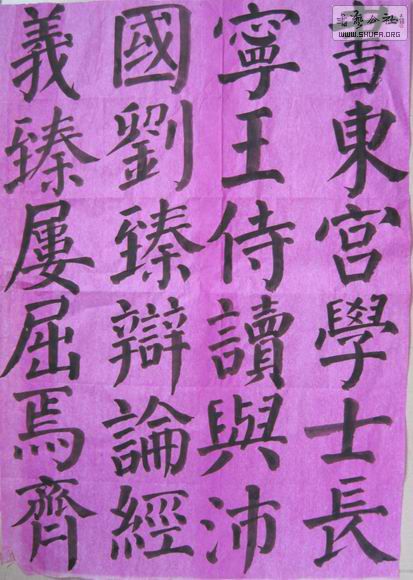 書藝公社
WWW.SHUFA.ORG
書東宮學士長
寧王侍讀與沛
國劉臻辯論經
義臻屢屈焉齊